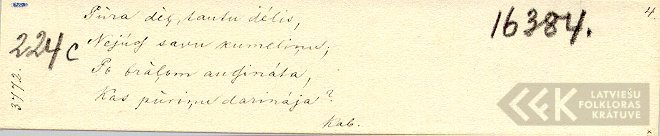 16384.
4.
224c
3772.
Pūra dēļ, tautu dēlis,
Nejūdz savu kumeliņu;
Pe brāļem audzināta,
Kas pūriņu darināja?
Kab.
LATVIEŠU
FOLKLORAS
KRĀTUVE